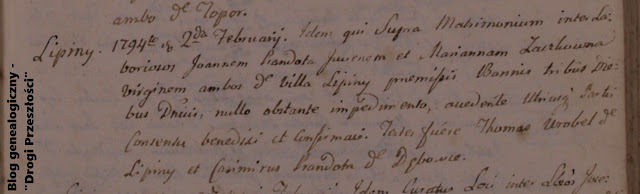 ambo de Topor.
Lipiny. 1794te 2da February. Idem qui Supra Matrimonium inter La-
boriosos Joannem Prandota Juvenem et Mariannam Zaczkowna
Virginem ambos de Villa Lipiny premissis Bannis tribus Die-
bus Dnicis, nullo obstante impedimento, accedente Utriusq Partis
Consensu benedixi et Confirmavi. Testes fuere Thomas Wrobel de
Lipiny et Casimirus Prandota de
Idem Curatus Loci inter
Blog genealogiczny -
"Drogi Przeszłości"